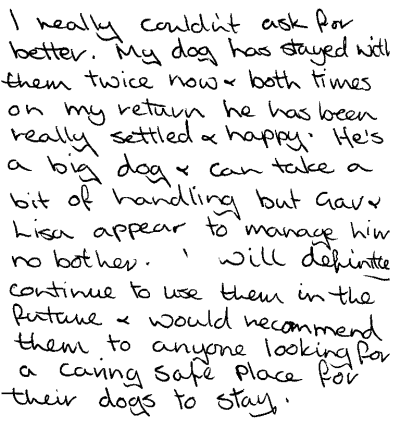 I really couldn't ask for
better. My dog has stayed with
them twice now & both times
on my return he has been
really settled & happy. He's
a big dog & can take a
bit of handling but Gav &
Lisa appear to manage him
no bother. I will definitle
continue to use them in the
future & would recommend
them to anyone looking for
a caring safe place for
their dogs to stay.